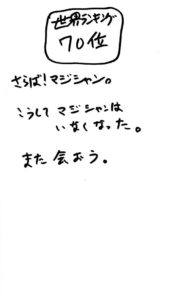 世界ランキング
70位
さらば!マジシャン。
こうしてマジシャンは
いなくなった。
また会おう。